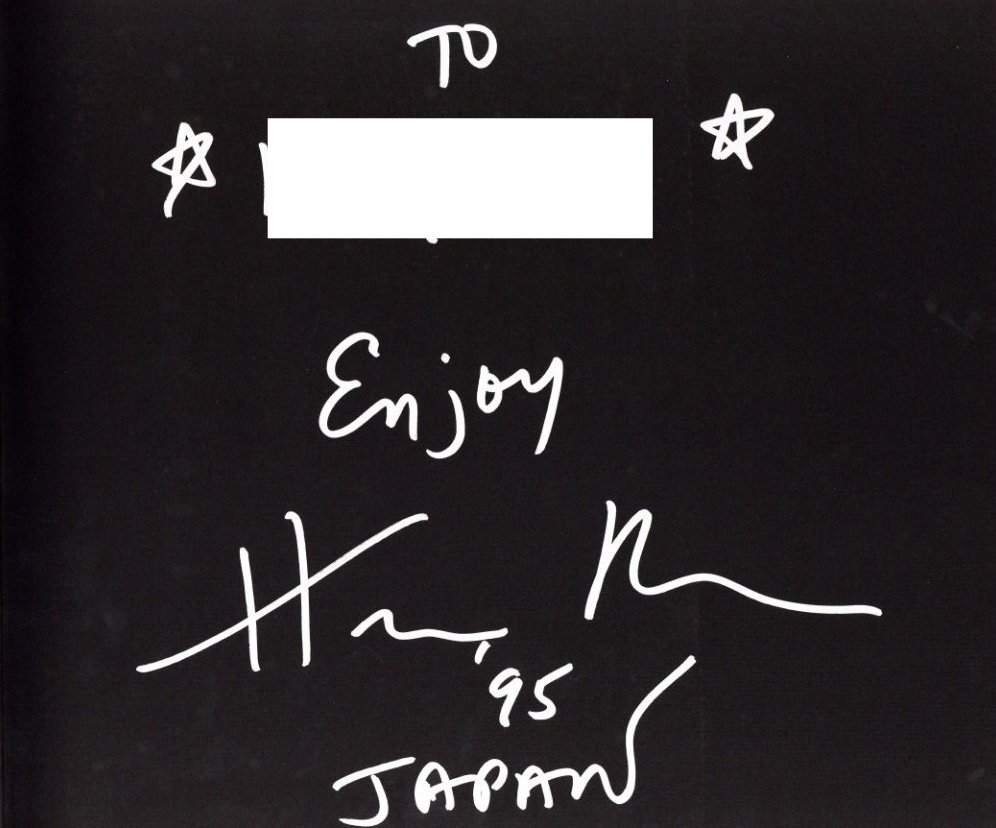 TO
Enjoy
'95
JAPAN